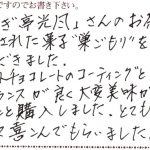 ですのでお書き下さい。
ぎ亭光風」さんのお
された菓子"巣ごもり"を
できました。
チョコレートのコーティングと
ランスが良く大変美味か
と購入しました。とても
て喜んでもらいました。